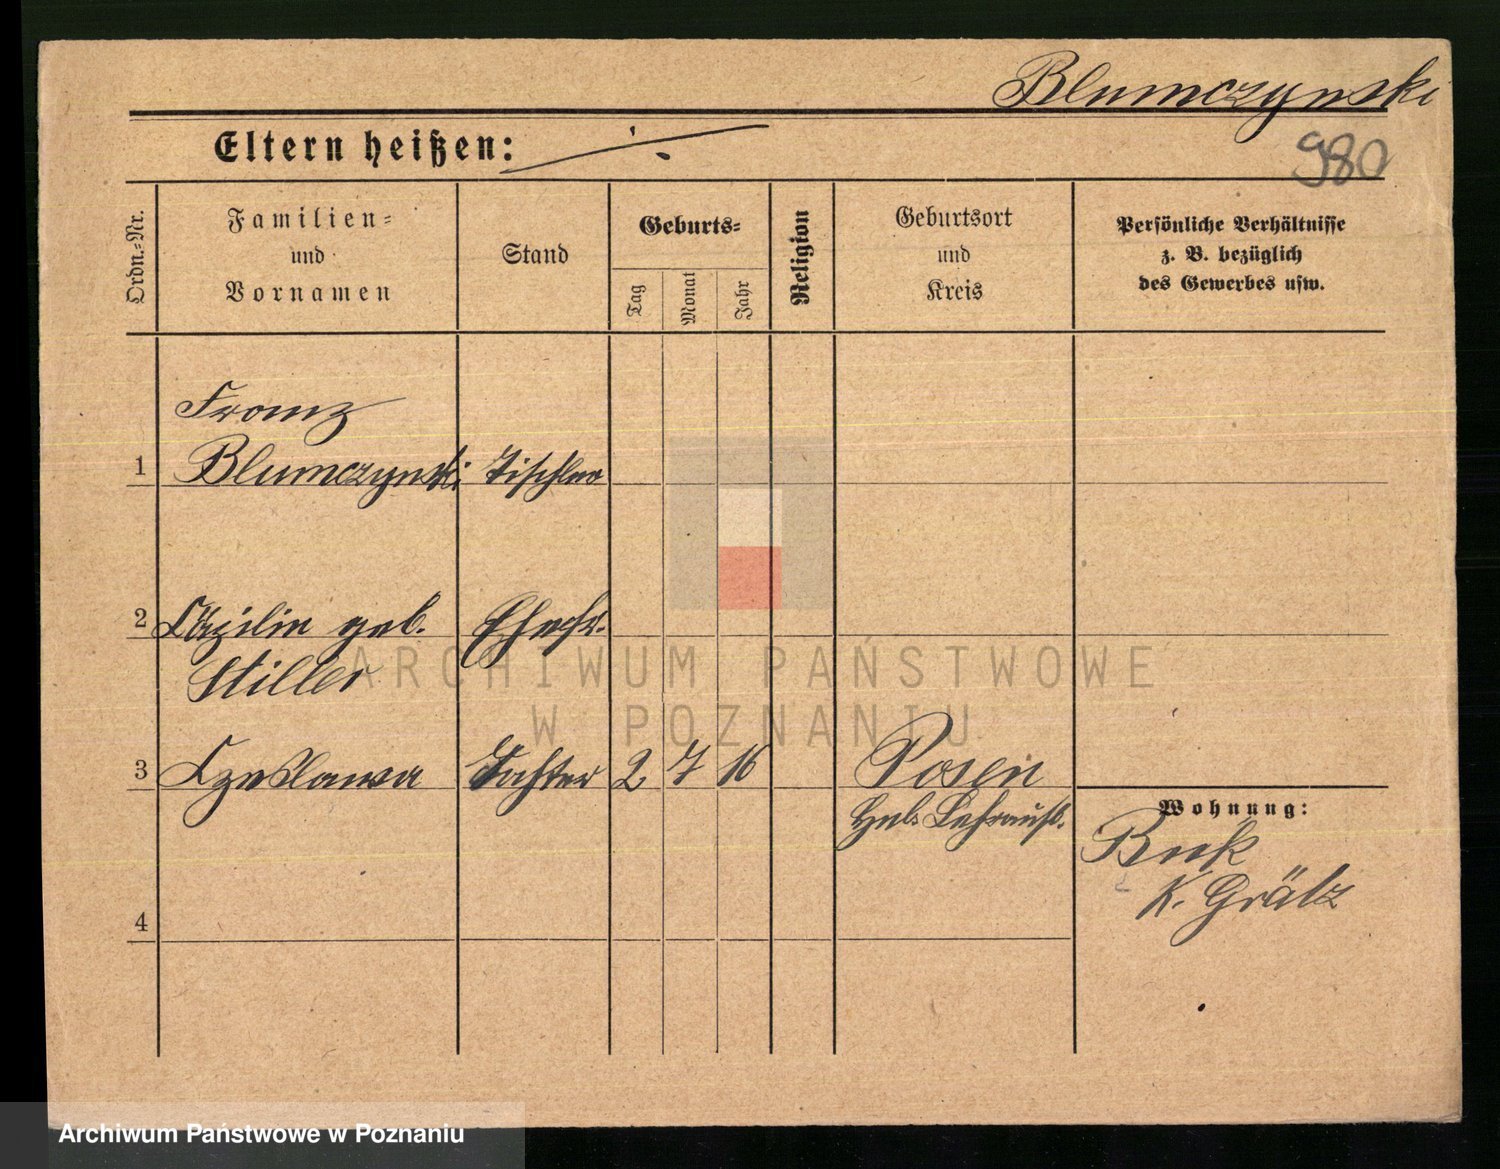 Blumczynski
Eltern heißen: ·/·
980
Ordn.-Nr.
Familien-
und
Vornamen
Stand
Geburts-
Tag
Monat
Jahr
Religion
Geburtsort
und
Kreis
Persönliche Verhältnisse
z. B. bezüglich
des Gewerbes usw.
Franz
1 Blumczynski Tischler
2 Cäzilie geb. Ehefr.
Stiller
ARCHIWUM PAŃSTWOWE
W POZNANIU
3 Czeslawa Tochter 2 7 16 Posen
Heb. Lehranst.
Wohnung:
Buk
K. Grätz
4
Archiwum Państwowe w Poznaniu